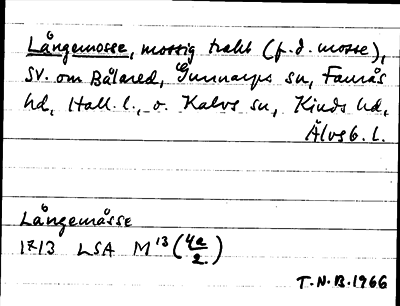 Långemosse, mossig trakt (f.d. mosse),
SV. om Bålared, Gunnarps sn, Faurås
hd, Hall. l., o. Kalvs sn, Kinds hd,
Älvsb. l.
Långemåsse
1713 LSA M¹³ (4a/2)
T.N.B. 1966